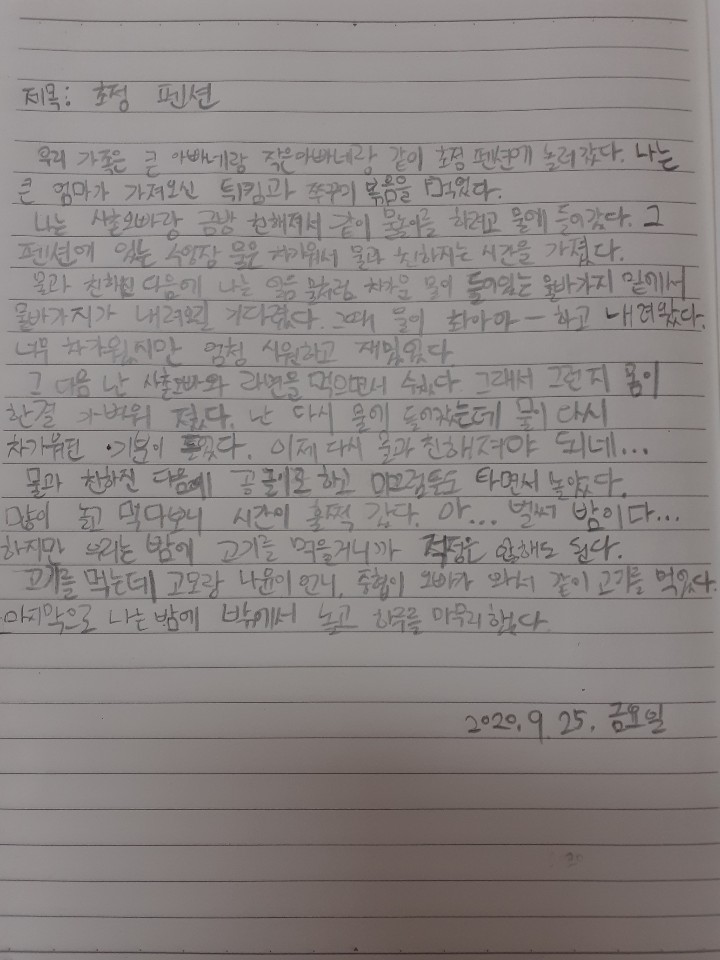 제목: 초정 펜션
우리 가족은 큰 아빠네랑 작은아빠네랑 같이 초정 펜션에 놀러갔다. 나는
큰 엄마가 가져오신 튀킴과 쭈꾸미 볶음을 먹었다.
나는 사촌오빠랑 금방 친해져서 같이 물놀이를 하려고 물에 들어갔다. 그
펜션에 있는 수영장 물은 차가워서 물과 친하지는 시간을 가졌다.
물과 친해진 다음에 나는 얼음 물처럼 차가운 물이 들어있는 물바가지 밑에서
물바가지가 내려오길 기다렸다. 그때 물이 촤아아- 하고 내려왔다.
너무 차가웠지만 엄청 시원하고 재밌었다.
그 다음 난 사촌오빠와 라면을 먹으면서 쉬었다. 그래서 그런지 몸이
한결 가벼워 졌다. 난 다시 물에 들어갔는데 물이 다시
차가워진 기분이 들었다. 이제 다시 물과 친해져야 되네...
물과 친하진 다음에 공놀이도 하고 미끄럼틀도 타면서 놀았다.
많이 놀고 먹다보니 시간이 훌쩍 갔다. 아... 벌써 밤이다...
하지만 우리는 밤에 고기를 먹을거니까 걱정은 않해도 된다.
고기를 먹는데 고모랑 나윤이 언니, 중협이 오빠가 와서 같이 고기를 먹었다.
마지막으로 나는 밤에 밖에서 놀고 하루를 마무리 했다.
2020. 9. 25. 금요일